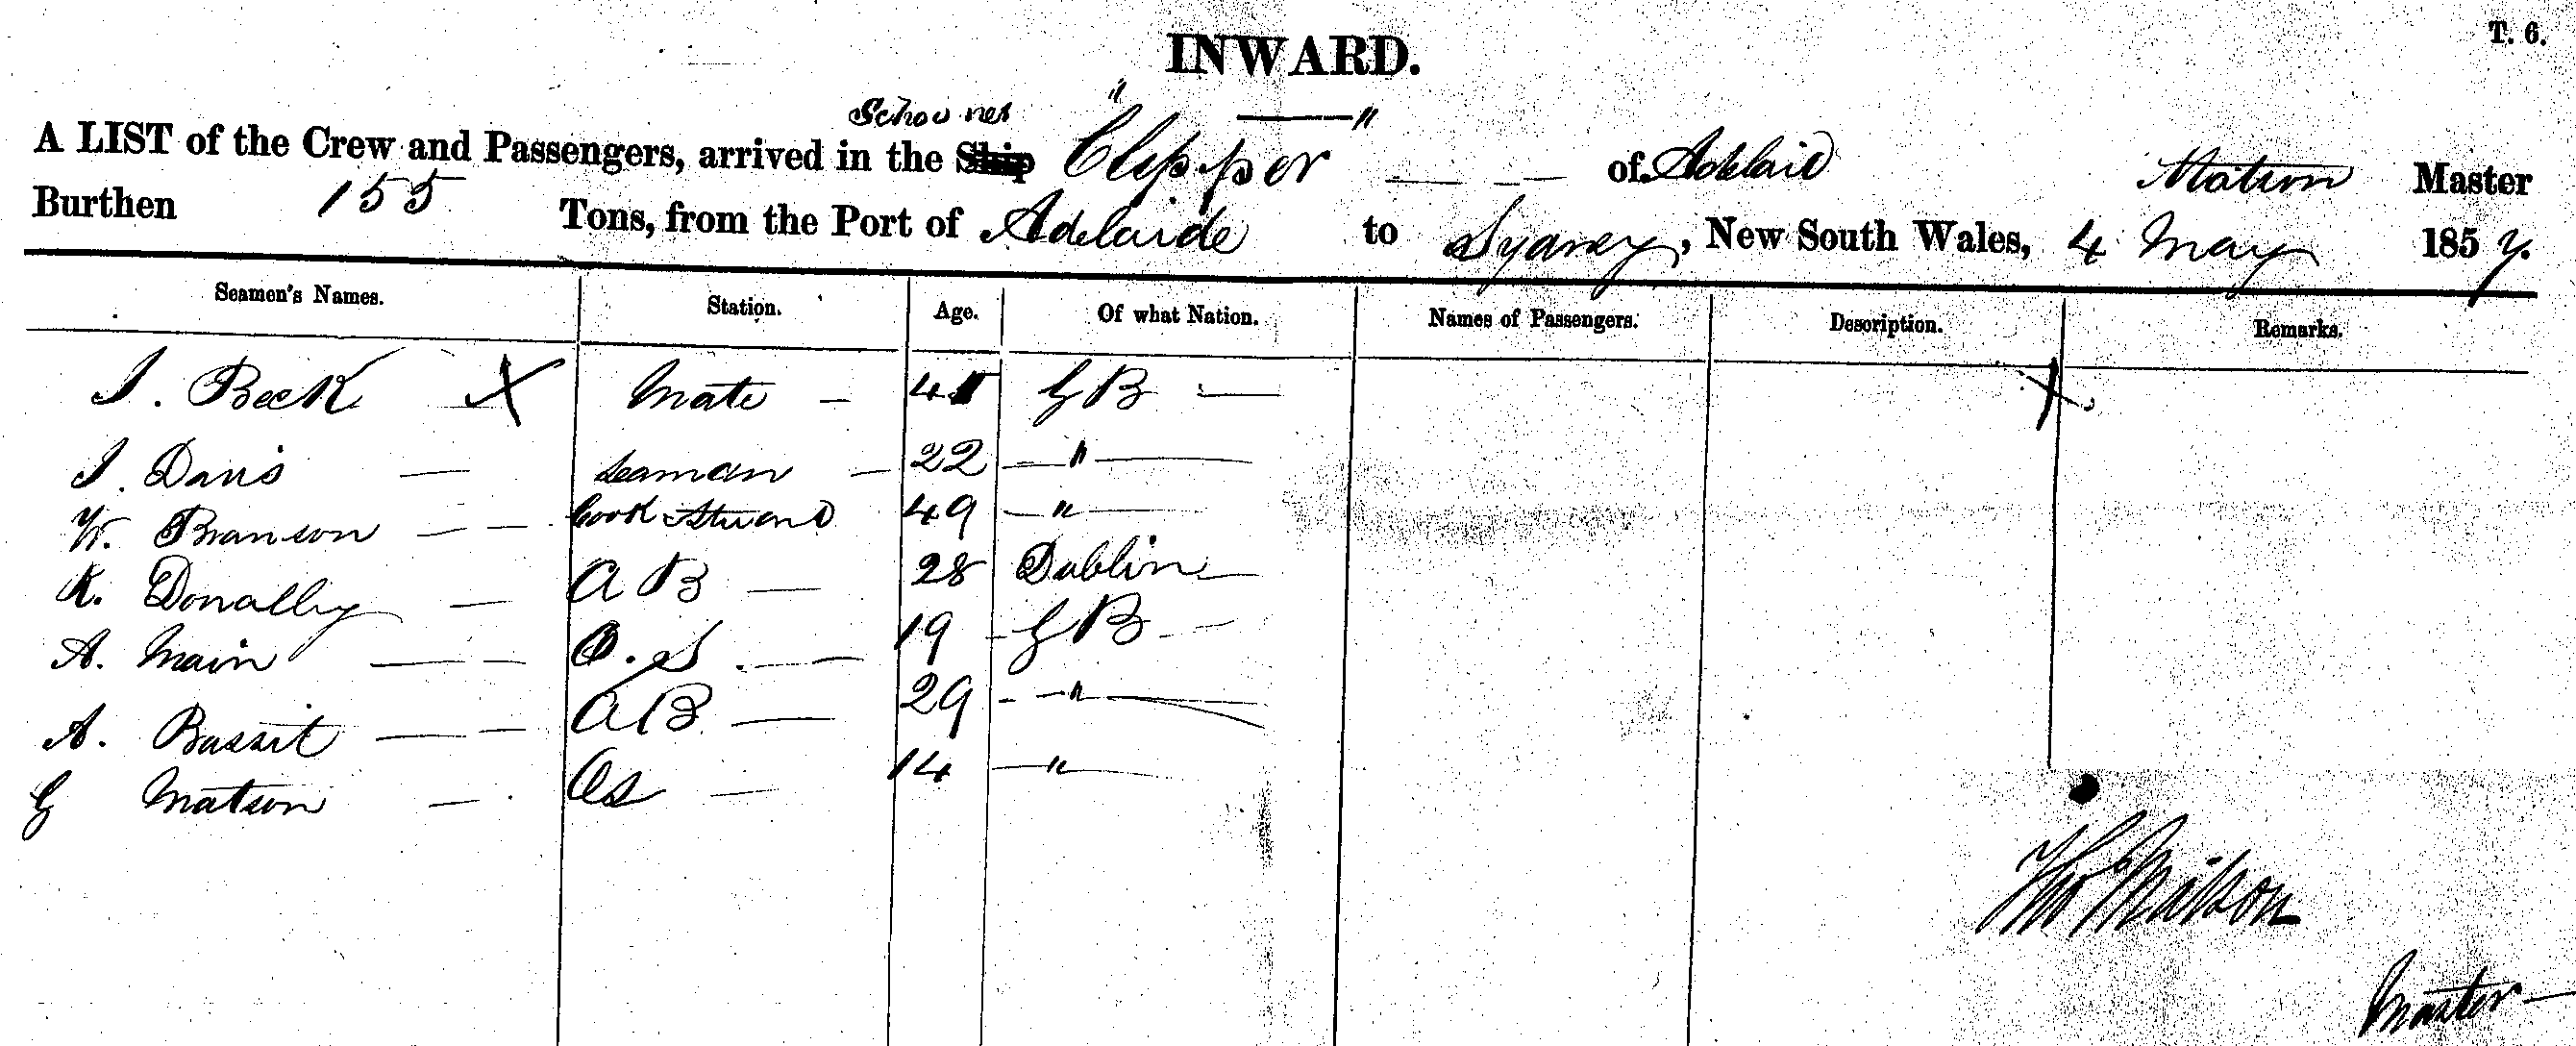 T. 6.
INWARD.
Schooner " ——— "
A LIST of the Crew and Passengers, arrived in the Ship Clipper — — — of Adelaid Matson Master
Burthen 155 Tons, from the Port of Adelaide to Sydney, New South Wales, 4 May 1857.
Seamen's Names. Station. Age. Of what Nation. Names of Passengers. Description. Remarks.
J. Beck X Mate — 41 GB — X
J. Davis — Seaman — 22 — " —
W. Branson — — Cook Steward 49 — " —
K. Donally — A B — 28 Dublin —
A. Main — — O. S. — — 19 - GB - —
A. Bassit — — AB — 29 - — " —
G Matson — Os — 14 — " —
Thos Matson
Master —